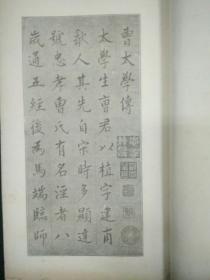 曹太學傳
太學生曹君以植字建甫
歙人其先自宋時多顯達
號忠孝曹氏有名涇者八
歲通五經後為馬端臨師